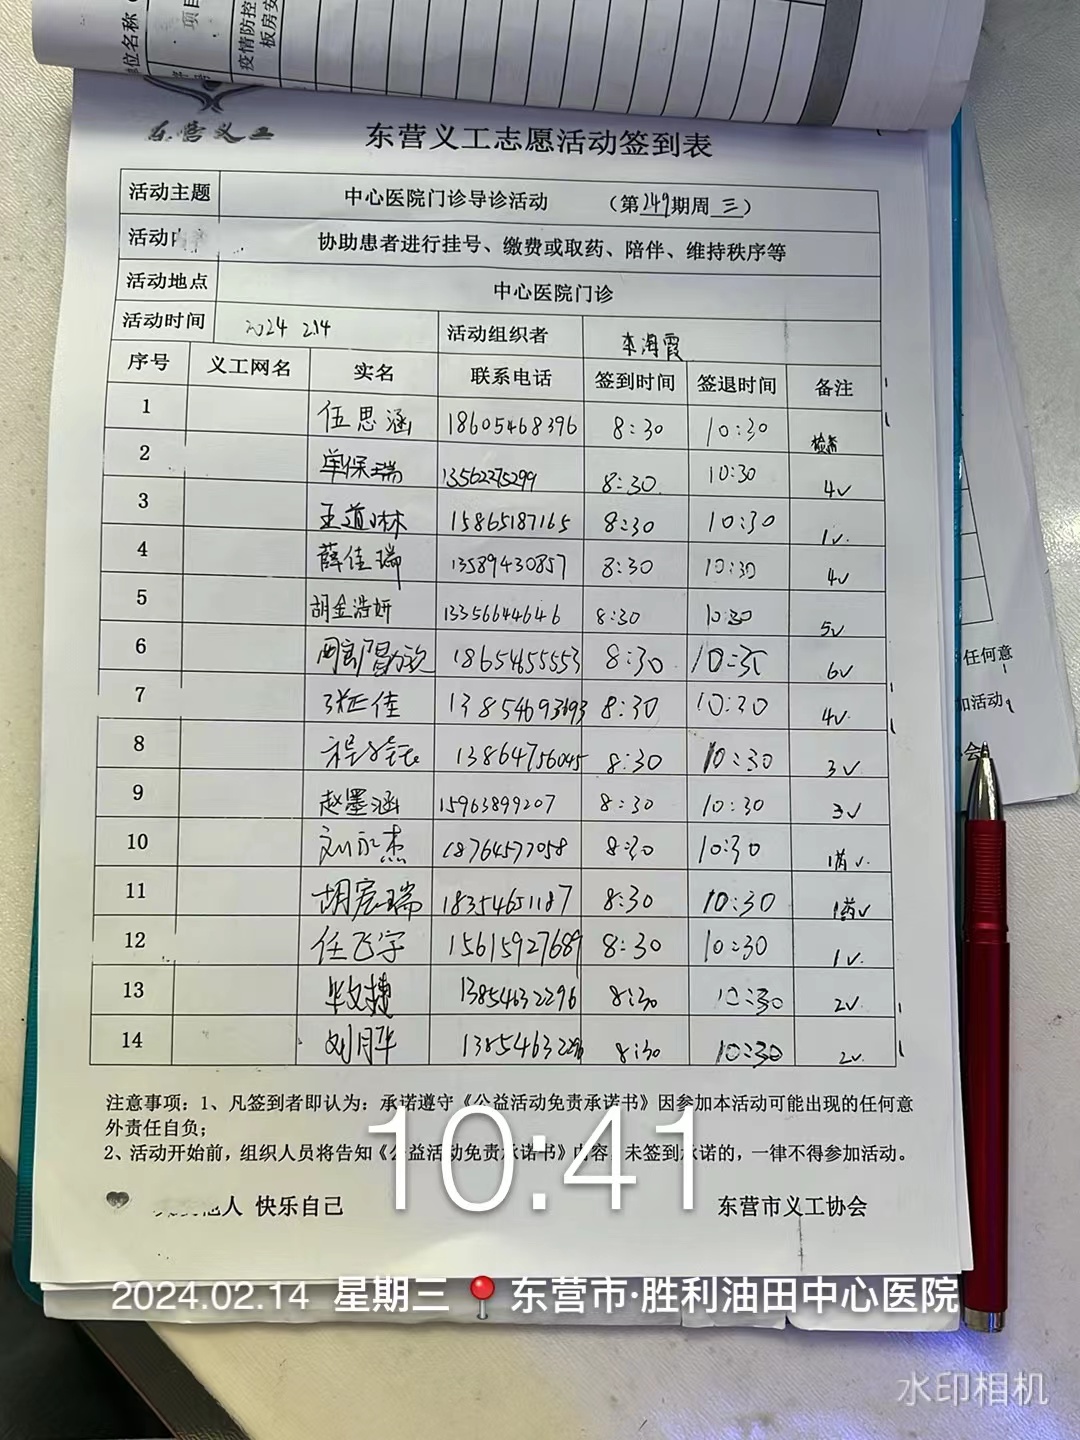 位名称
疫情防控
板房安
东营义工
东营义工志愿活动签到表
活动主题 中心医院门诊导诊活动 (第249期周三)
活动内 协助患者进行挂号、缴费或取药、陪伴、维持秩序等
活动地点 中心医院门诊
活动时间 2024 2.14 活动组织者 李海霞
序号 义工网名 实名 联系电话 签到时间 签退时间 备注
1 伍思涵 18605468396 8:30 10:30
2 单保瑞 13562275299 8:30 10:30 4√
3 王道林 15865187165 8:30 10:30 1√
4 薛佳瑞 13589430857 8:30 10:30 4√
5 胡金浩妍 13356644646 8:30 10:30 5√
6 18654655553 8:30 10:30 6√
7 张正佳 13854693693 8:30 10:30 4√
8 13864756045 8:30 10:30 3√
9 赵墨涵 15963899207 8:30 10:30 3√
10 刘永杰 18764577058 8:30 10:30
11 胡宸瑞 18354651187 8:30 10:30
12 任飞宇 15615927689 8:30 10:30 1√
13 毕文捷 13854632296 8:30 10:30 2√
14 刘月华 13854632296 8:30 10:30 2√
注意事项：1、凡签到者即认为：承诺遵守《公益活动免责承诺书》因参加本活动可能出现的任何意
外责任自负；
2、活动开始前，组织人员将告知《公益活动免责承诺书》内容，未签到承诺的，一律不得参加活动。
他人 快乐自己 东营市义工协会
任何意
加活动。
会
10:41
2024.02.14 星期三 东营市·胜利油田中心医院
水印相机